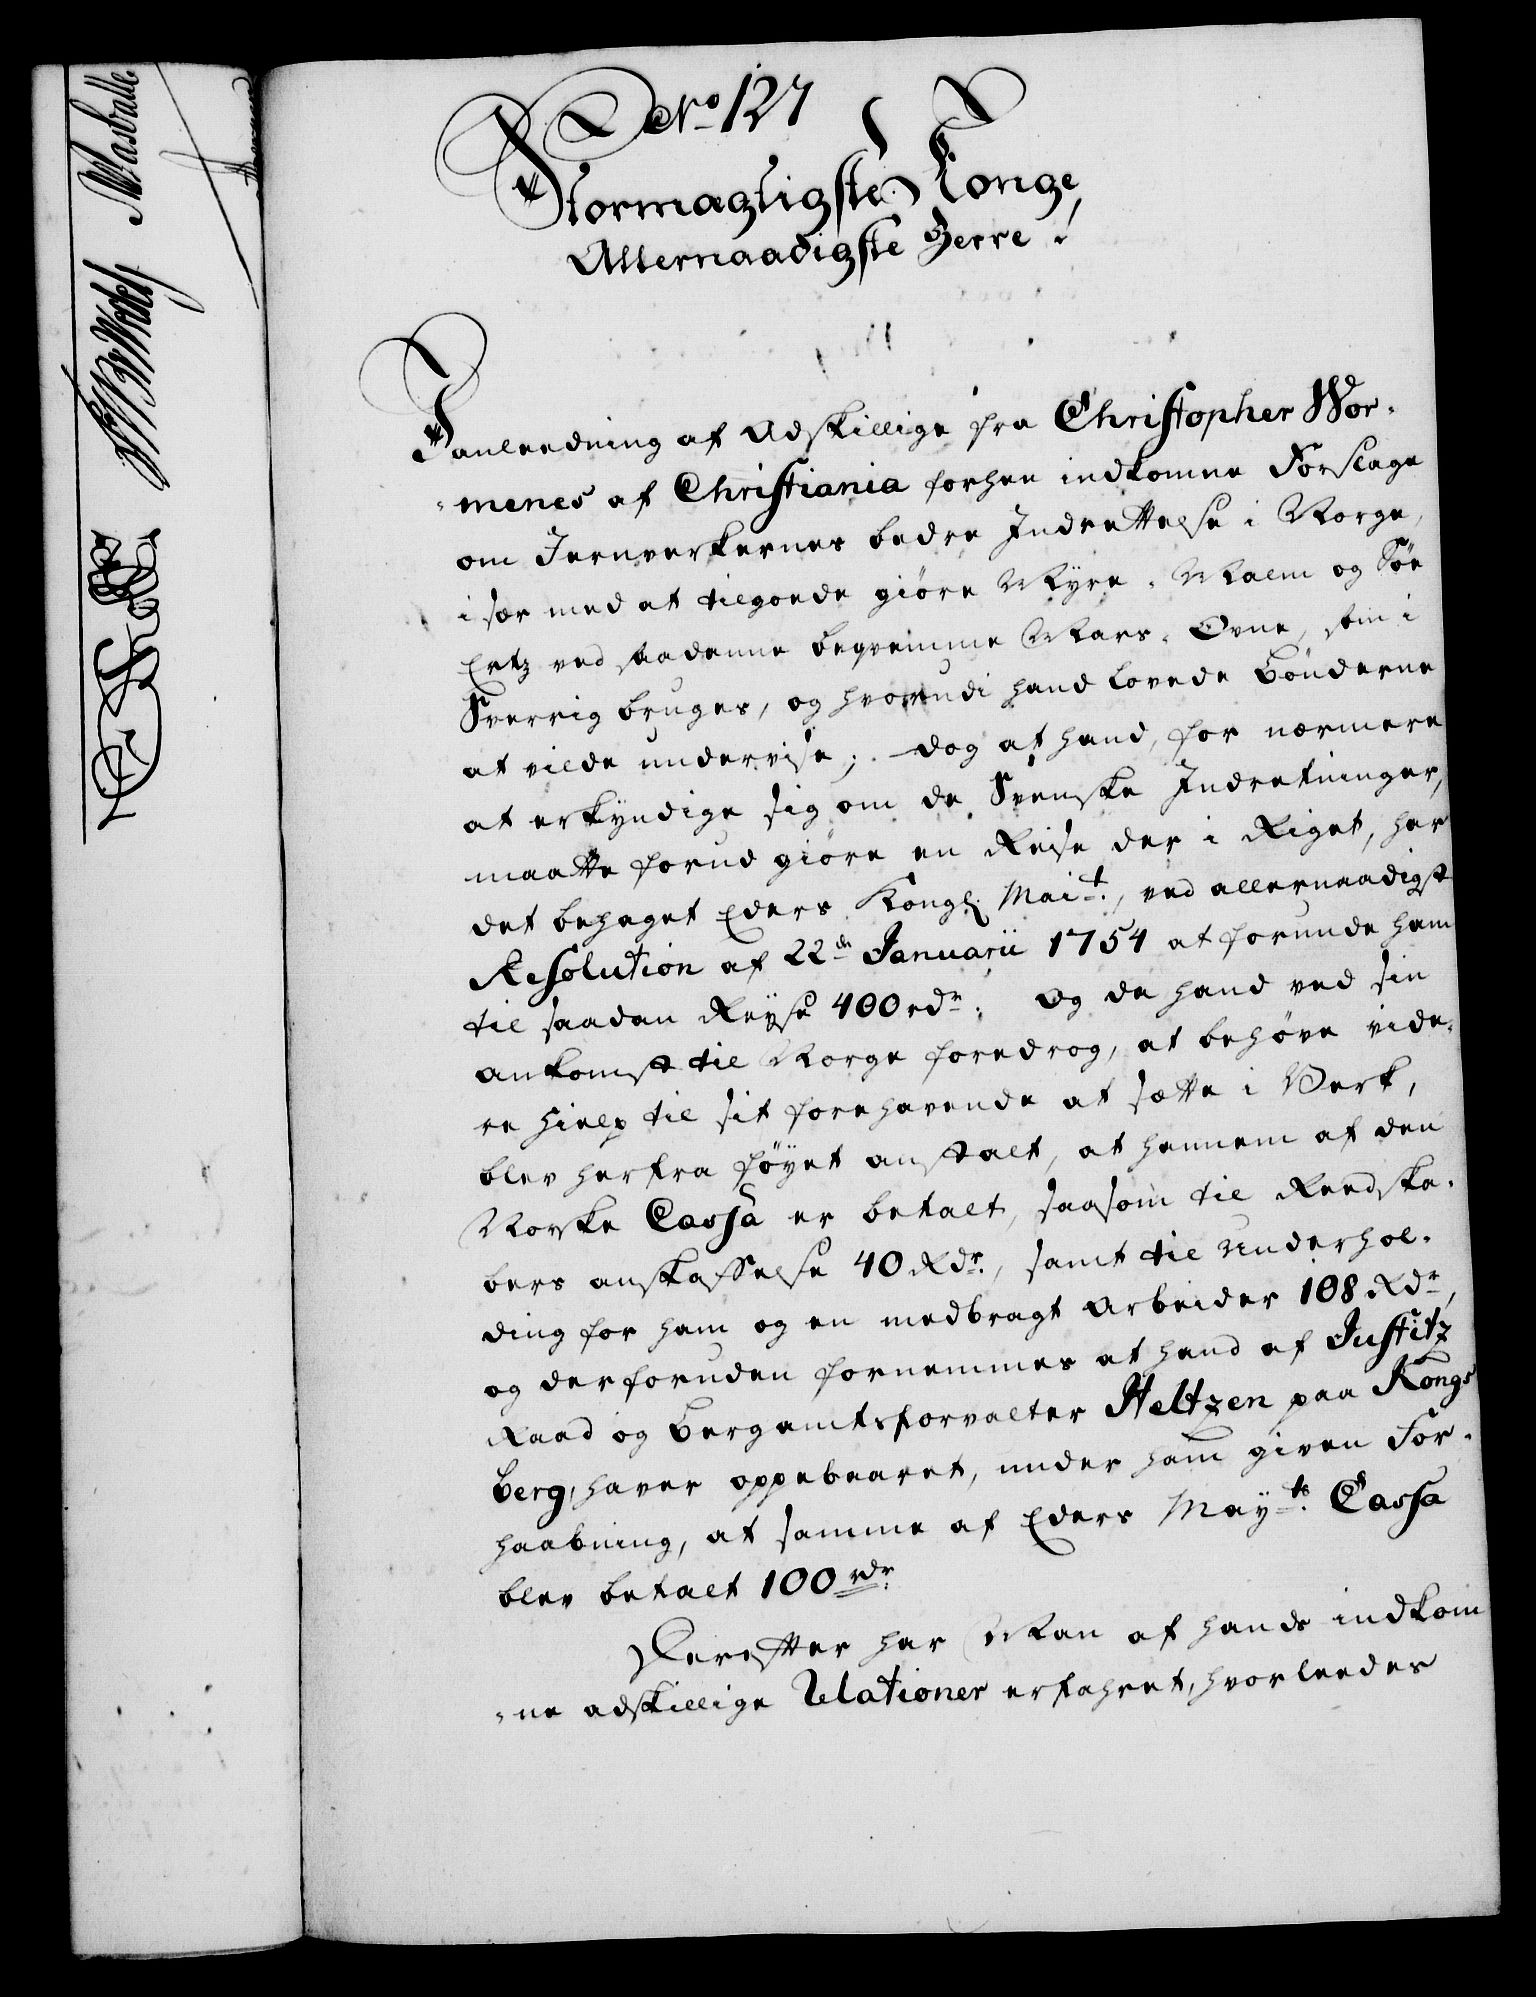 No 127
Stormægtigste Konge,
Allernaadigste Herre!
I anleedning af adskillige fra Christopher Wor-
-menes af Christiania forhen indkomne Forslage
om Jernverkernes bedre Indrettelse i Norge,
i sær med at tilgoede giöre Myre-Malm og Söe
Ertz ved saadanne beqvemme Mars-Ovne, som i
Sverrig bruges, og hvorudi hand lovede bönderne
at vilde undervise; dog at hand, for nærmere
at erkyndige sig om de Svenske Indretninger,
maatte forud giöre en Reise der i Riget, har
det behaget Eders Kongl. Mait., ved allernaadigst
Resolution af 22de Januarii 1754 at forunde ham
til saadan Reyse 400 rdr. Og da hand ved sin
ankomst til Norge foredrog, at behöve vide-
re Hielp til sit forehavende at sætte i Verk,
blev herfra föyet anstalt, at hannem af den
Norske Cassa er betalt, saasom til Reedska-
bers anskaffelse 40 Rdr., samt til Underhol-
ding for ham og en medbragt Arbeider 108 Rdr,
og derforuden fornemmes at hand af Justitz
Raad og Bergamtsforvalter Heltzen paa Kongs
berg, haver oppebaaret, under ham given For-
haabning, at samme af Eders Mayts. Cassa
blev betalt 100 rdr.
Derefter har Man af hands indkom
-ne adskillige Relationer erfahret, hvorleedes